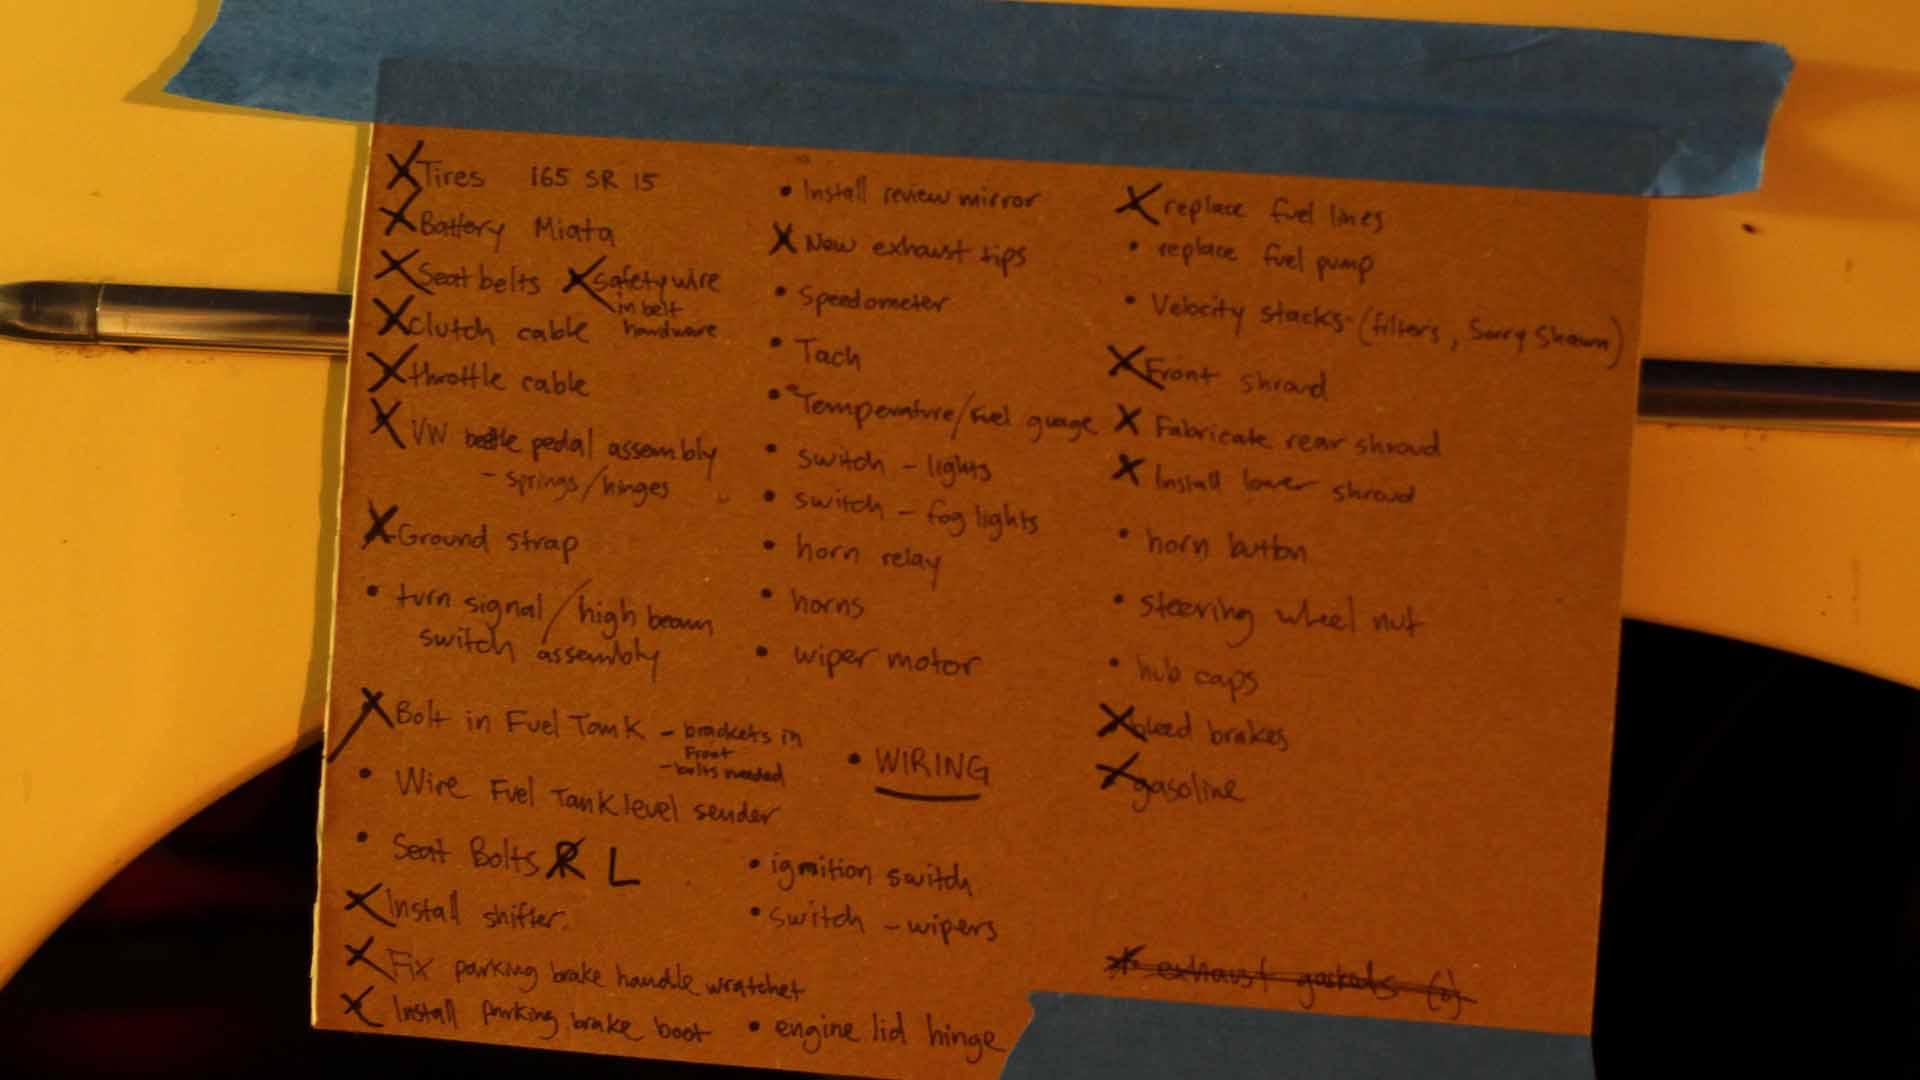 Tires 165 SR 15
Battery Miata
Seat belts
Safety wire
in belt
hardware
Clutch cable
throttle cable
VW beetle pedal assembly
- springs/hinges
Ground strap
• turn signal / high beam
switch assembly
Bolt in Fuel Tank - brackets in
Front
- bolts needed
• Wire Fuel Tank level sender
• Seat Bolts R L
Install shifter.
Fix parking brake handle wratchet
Install parking brake boot
• Install review mirror
New exhaust tips
• Speedometer
• Tach
• Temperature/Fuel guage
• switch - lights
• switch - fog lights
• horn relay
• horns
• wiper motor
• WIRING
• ignition switch
• switch - wipers
• engine lid hinge
replace fuel lines
• replace fuel pump
• Velocity stacks - (filters, Sorry Shawn)
Front shroud
Fabricate rear shroud
Install lower shroud
• horn button
• steering wheel nut
• hub caps
bleed brakes
gasoline
exhaust gaskets